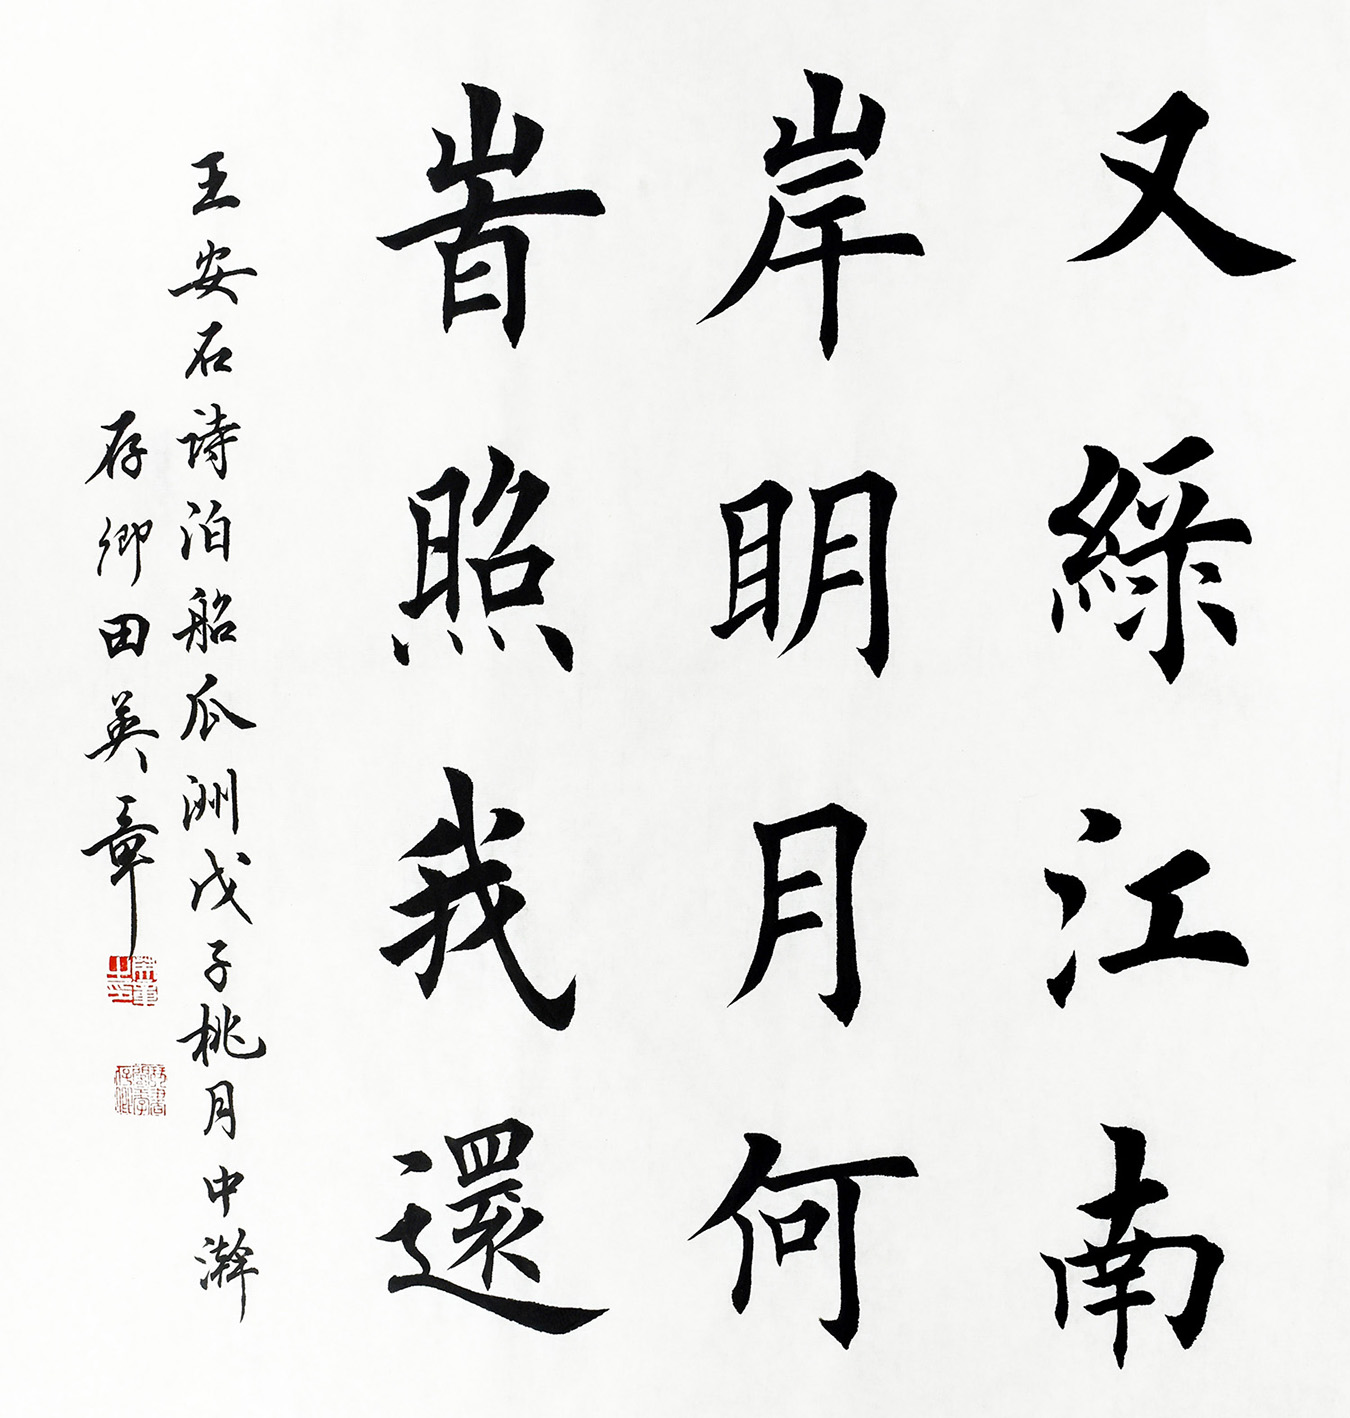 又綠江南
岸明月何
旹照我還
王安石诗泊船瓜洲戊子桃月中澣
存卿田英章
英章之印